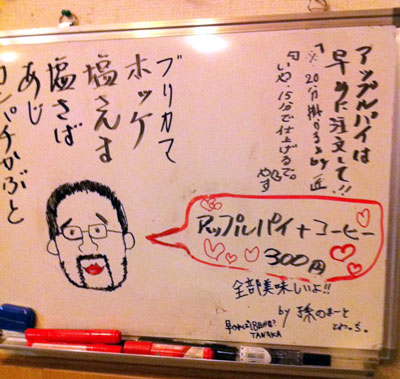 アップルパイは
早めに注文して!!
※20分掛かるよby匠
匂いや、15分で仕上げるで。
ブリカマ
ホッケ
塩さんま
塩さば
あじ
カンパチかぶと
アップルパイ+コーヒー
300円
全部美味しいよ!!
by 孫のまーと
TANAKA